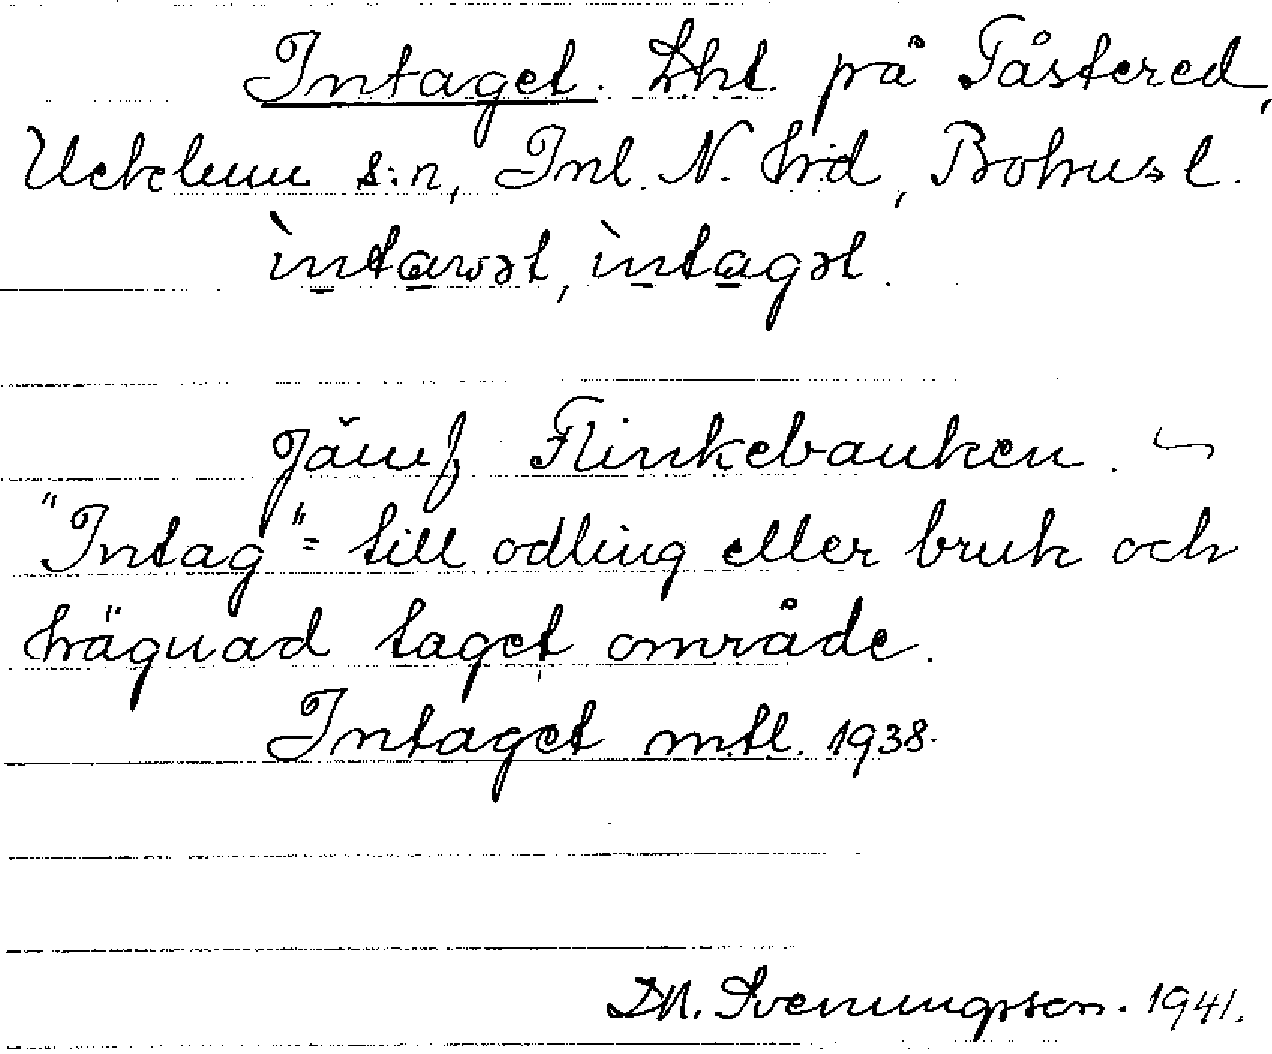 Intaget. Lht. på Tåstered,
Ucklum s:n, Inl. N. hrd, Bohusl.
ìntawət, ìntagət.
Jämf Flinkebanken.
"Intag" = till odling eller bruk och
hägnad taget område.
Intaget mtl. 1938.
DN. Svenungsson. 1941.